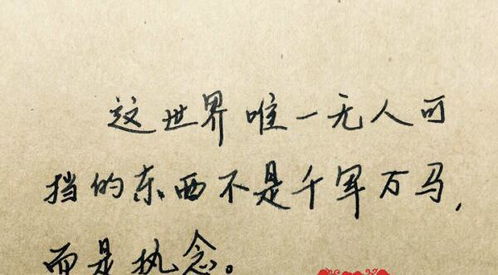 这世界唯一无人可
挡的东西不是千军万马，
而是执念。